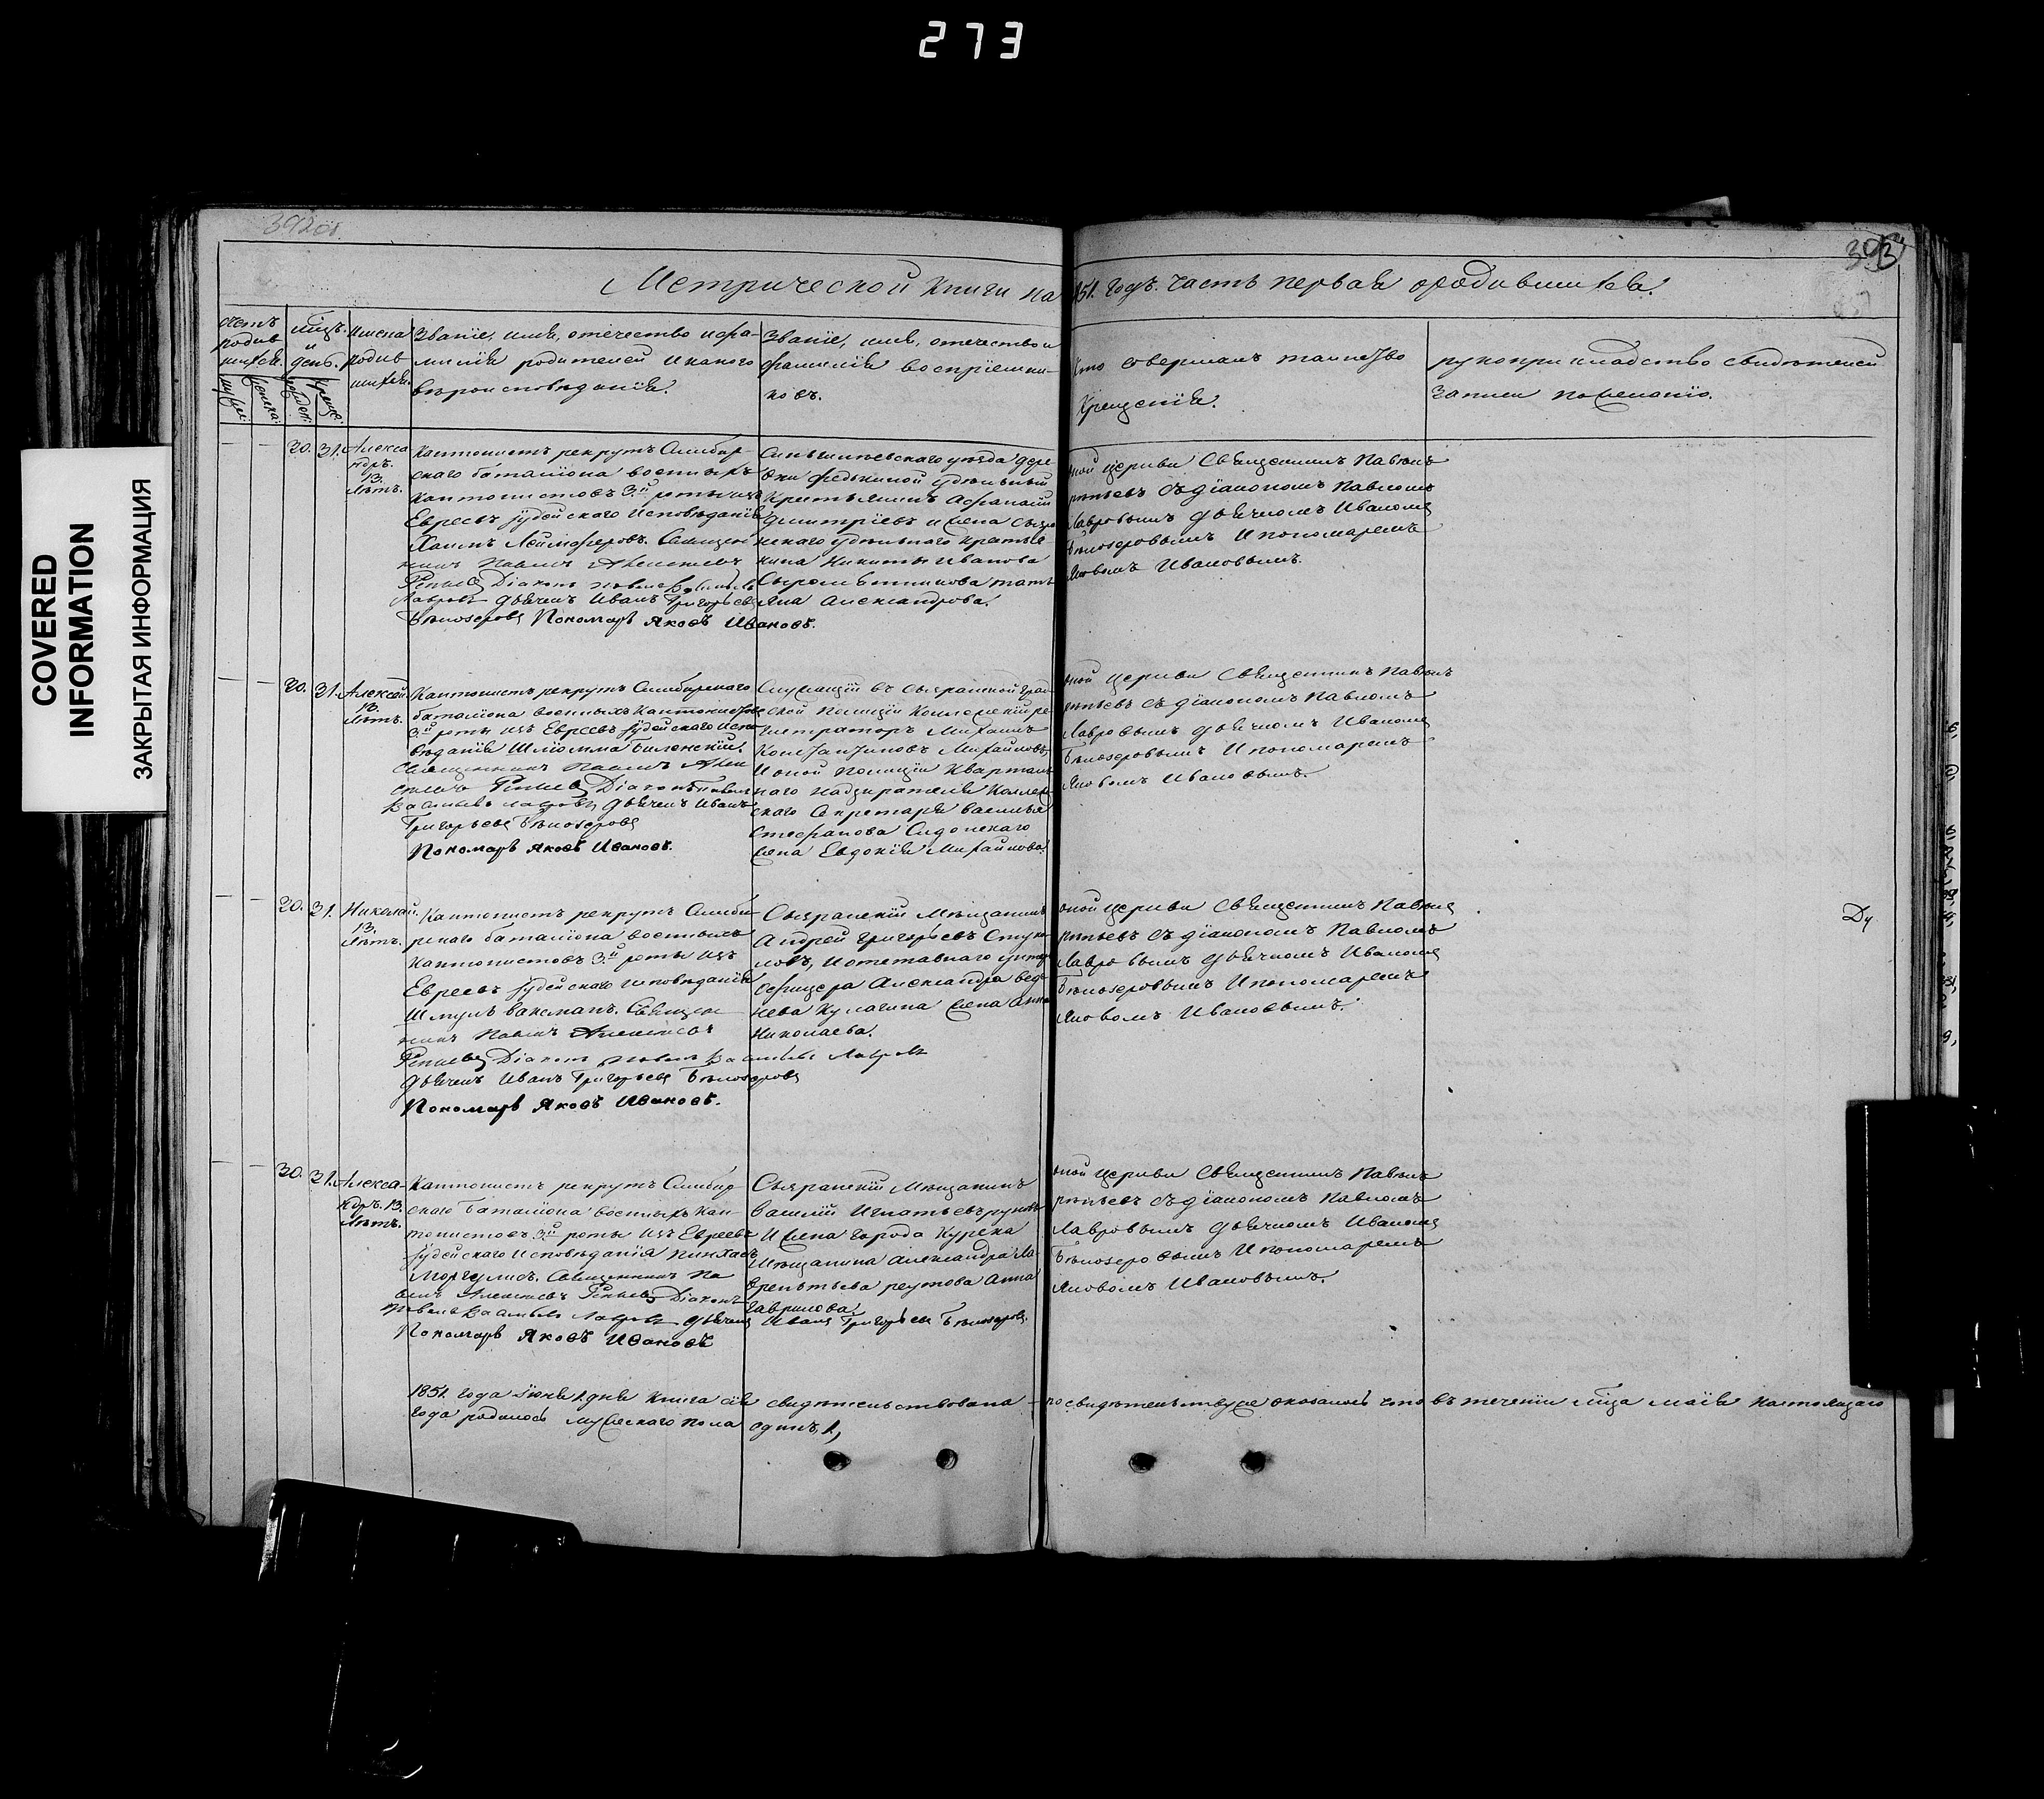 273
COVERED
INFORMATION
ЗАКРЫТАЯ ИНФОРМАЦИЯ
392об.
393
Метрической книги на 1851. годъ. часть первая о родившихся.
счетъ
родив
шихся.
мцъ.
и
день.
Имена
родив
шихся.
Званіе, имя, отечество и фа-
милія родителей и какого
вѣроисповѣданія.
Званіе, имя, отечество и
фамилія воспріемни-
ковъ.
Кто совершалъ таинство
Крещенія.
рукоприкладство свидѣтелей
записи по желанію.
30. 31. Алекса
ндръ.
13.
лѣтъ.
Кантонистъ рекрутъ Симбир-
скаго баталіона военныхъ
Кантонистовъ 3й роты изъ
Евреевъ іудейскаго исповѣданія
Хаимъ Священ
никъ Павелъ Алексѣевъ
Діаконъ Павелъ Васильевъ
Лавровъ дьячекъ Иванъ Григорьевъ
Бѣлозеровъ Пономарь Яковъ Ивановъ.
уѣзда дере-
вни удѣльный
Крестьянинъ Афанасій
Дмитріевъ и жена Сызра
нскаго удѣльнаго крестья
нина Никиты Иванова
Тать
яна Александрова.
оной церкви Священникъ Павелъ
съ діакономъ Павломъ
Лавровымъ дьячкомъ Иваномъ
Бѣлозеровымъ и пономаремъ
Яковомъ Ивановымъ.
30. 31. Алексѣй.
13.
лѣтъ.
Кантонистъ рекрутъ Симбирскаго
баталіона военныхъ Кантонистовъ
3й роты изъ Евреевъ іудейскаго испо
вѣданія Шліомма Биленскій.
Священникъ Павелъ Алек
сѣевъ Діаконъ Павелъ
Васильевъ Лавровъ дьячекъ Иванъ
Григорьевъ Бѣлозеровъ
Пономарь Яковъ Ивановъ.
Служащій въ Сызранской град
ской полиціи Коллежскій ре
гистраторъ Михаилъ
Константиновъ Михайловъ,
и оной полиціи квартал
наго надзирателя Коллеж
скаго Секретаря Василья
Стефанова Сидонскаго
жена Евдокія Михайлова.
оной церкви Священникъ Павелъ
съ діакономъ Павломъ
Лавровымъ дьячкомъ Иваномъ
Бѣлозеровымъ и пономаремъ
Яковомъ Ивановымъ.
30. 31. Николай.
13.
лѣтъ.
Кантонистъ рекрутъ Симби
рскаго баталіона военныхъ
Кантонистовъ 3й роты изъ
Евреевъ іудейскаго исповѣданія
Шмуль Ваксманъ. Священ
никъ Павелъ Алексѣевъ
Діаконъ Павелъ Васильевъ Лавровъ
дьячекъ Иванъ Григорьевъ Бѣлозеровъ
Пономарь Яковъ Ивановъ.
Сызранскій Мѣщанинъ
Андрей Григорьевъ
и отставнаго унтеръ
офицера Александра
Кулагина жена Анна
Николаева.
оной церкви Священникъ Павелъ
съ діакономъ Павломъ
Лавровымъ дьячкомъ Иваномъ
Бѣлозеровымъ и пономаремъ
Яковомъ Ивановымъ.
Ду
30. 31. Алекса-
ндръ. 13.
лѣтъ.
Кантонистъ рекрутъ Симбир
скаго баталіона военныхъ кан-
тонистовъ 3й роты изъ Евреевъ
іудейскаго исповѣданія Пинхасъ
Моргулисъ. Священникъ Па
велъ Алексѣевъ Діаконъ
Павелъ Васильевъ Лавровъ дьячекъ Иванъ Григорьевъ Бѣлозеровъ.
Пономарь Яковъ Ивановъ
Сызранскій Мѣщанинъ
Василій Игнатьевъ
и жена города Курска
мѣщанина Александра Ла-
врентьева Реутова Анна
Гаврилова.
оной церкви Священникъ Павелъ
съ діакономъ Павломъ
Лавровымъ дьячкомъ Иваномъ
Бѣлозеровымъ и пономаремъ
Яковомъ Ивановымъ.
1851. года Іюня 1. дня книга сія свидѣтельствована по свидѣтельству же оказалось что въ теченіи мца маія настоящаго
года родилось мужескаго пола одинъ, 1,